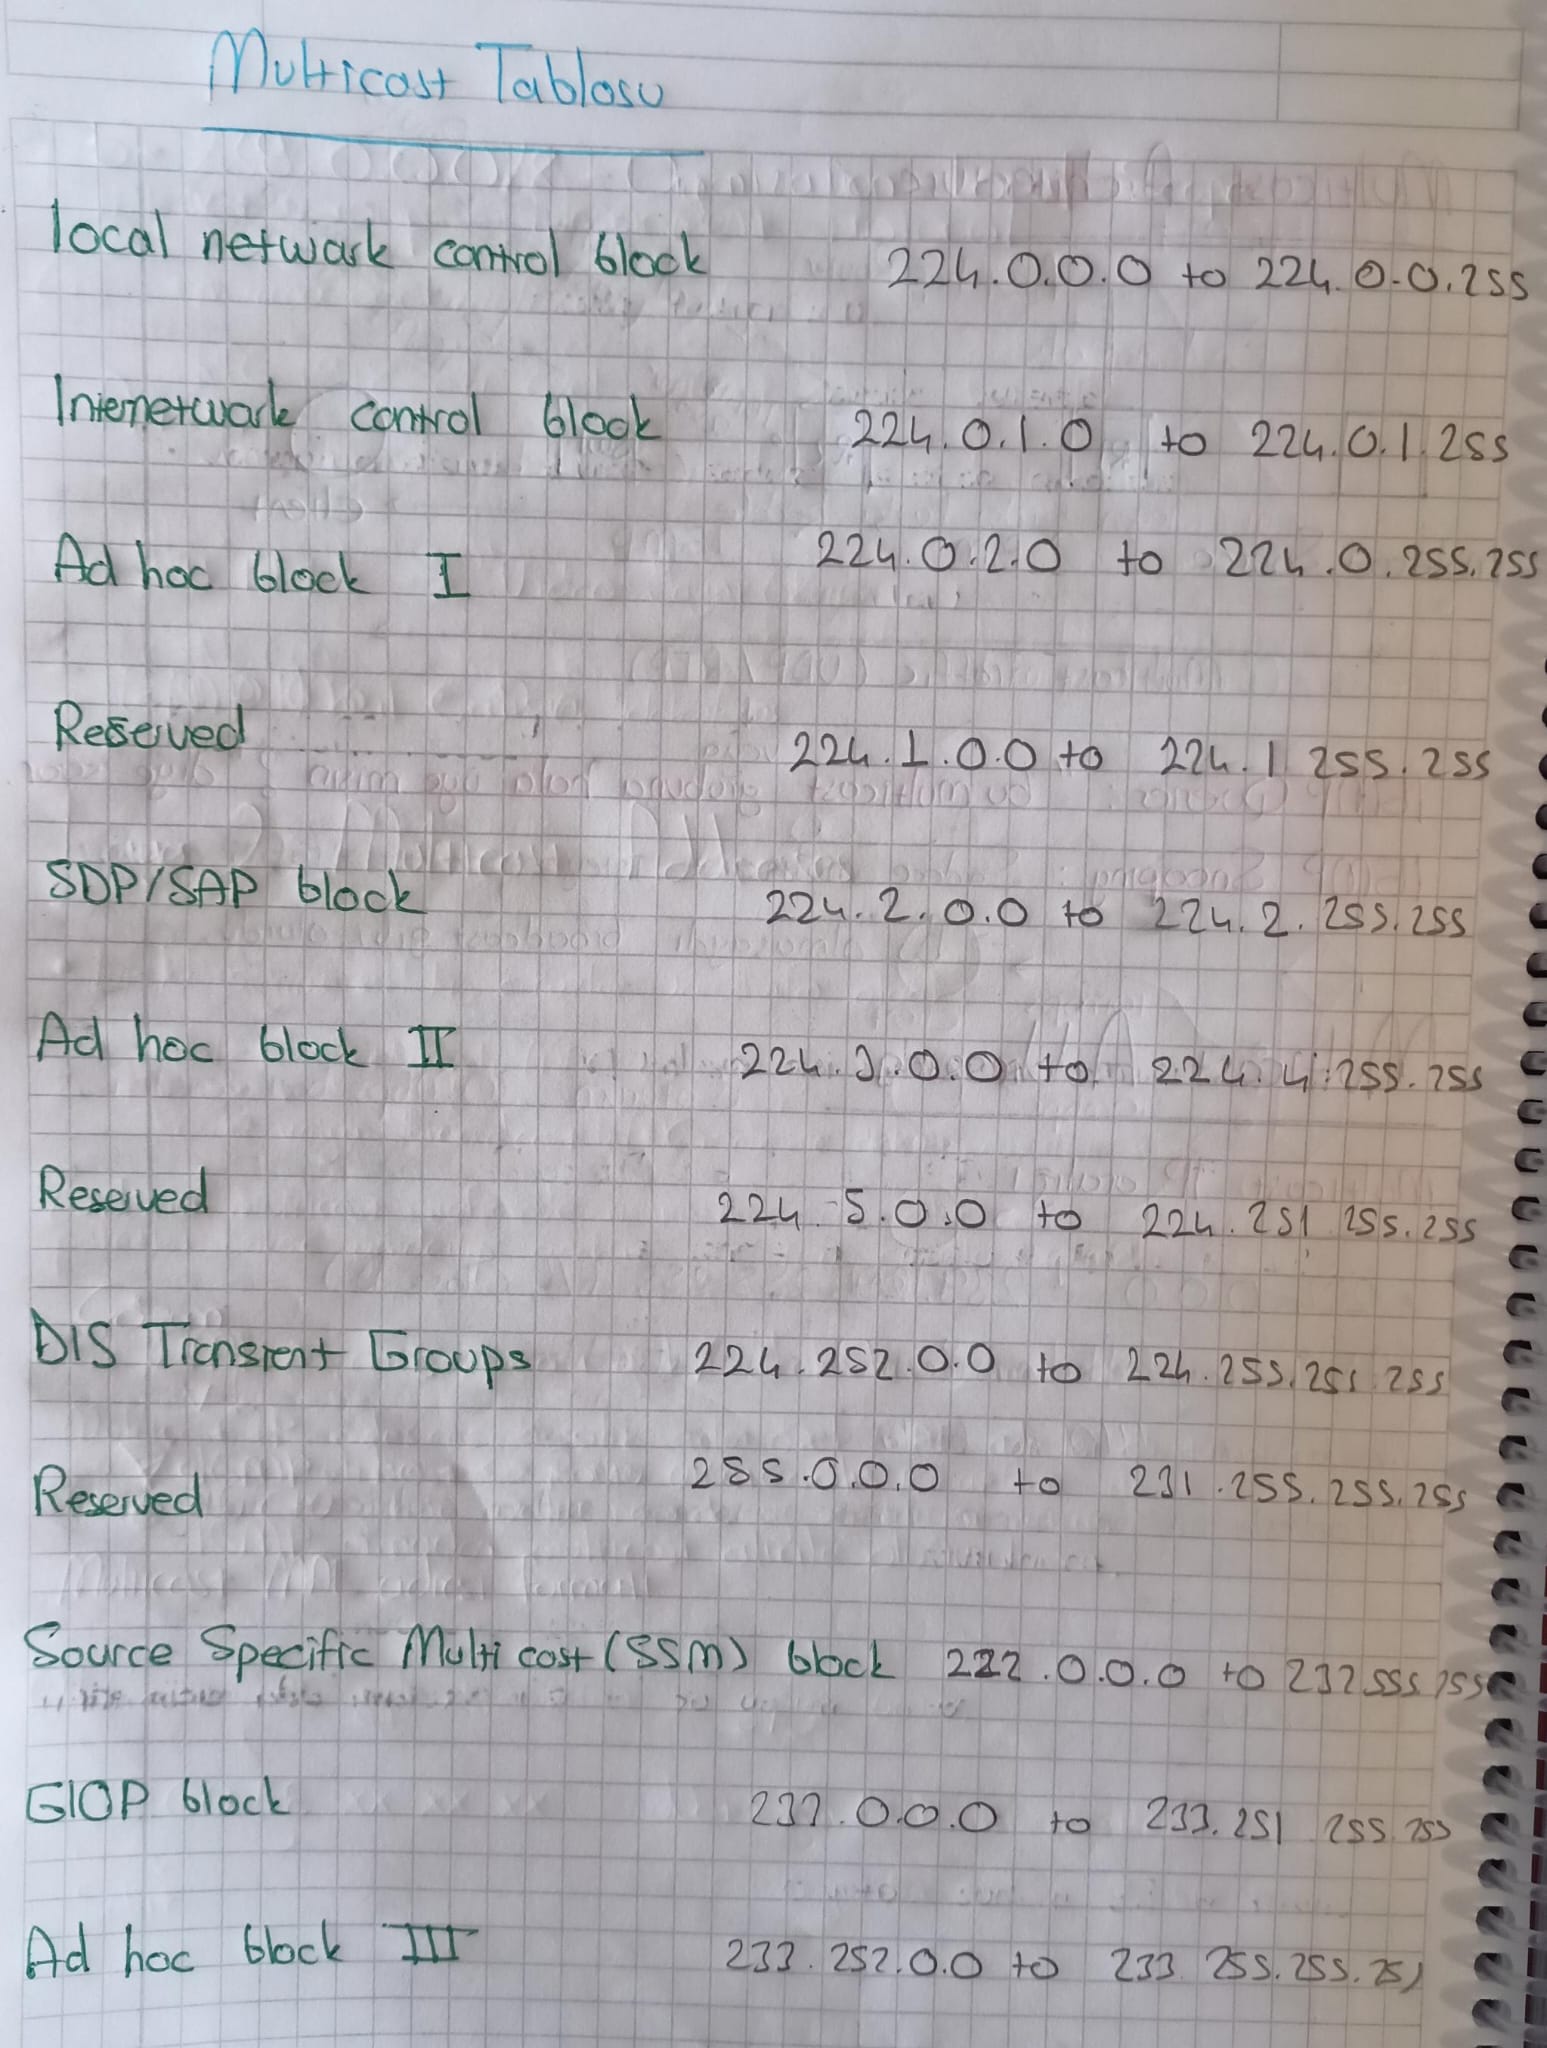 Multicast Tablosu
local network control block 224.0.0.0 to 224.0.0.255
Internetwork control block 224.0.1.0 to 224.0.1.255
Ad hoc block I 224.0.2.0 to 224.0.255.255
Reserved 224.1.0.0 to 224.1 255.255
SDP/SAP block 224.2.0.0 to 224.2.255.255
Ad hoc block II 224.3.0.0 to 224.4.255.255
Reserved 224.5.0.0 to 224.251.255.255
DIS Transient Groups 224.252.0.0 to 224.255.255.255
Reserved 255.0.0.0 to 231.255.255.255
Source Specific Multicast (SSM) block 232.0.0.0 to 232.555.255
GIOP block 233.0.0.0 to 233.251 255.255
Ad hoc block III 233.252.0.0 to 233.255.255.251